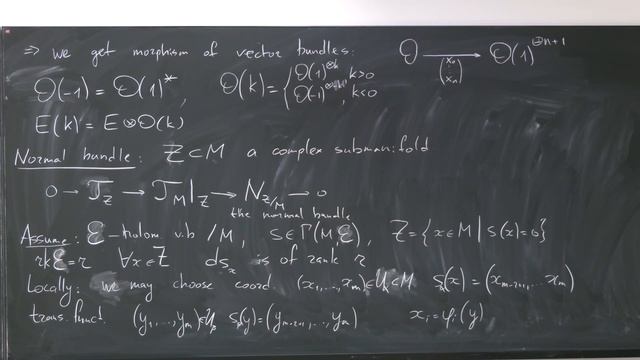 ⇒ we get morphism of vector bundles: O → O(1)^{⊕n+1} (x_0 ⋮ x_n)
O(-1) = O(1)*, O(k) = { O(1)^{⊗k}, k>0
O(-1)^{⊗|k|}, k<0
E(k) = E⊗O(k)
Normal bundle: Z⊂M a complex submanifold
0 → T_Z → T_M|_Z → N_{Z/M} → 0
the normal bundle
Assume: E - holom v.b /M, S∈Γ(M,E), Z={x∈M | S(x)=0}
rkE=r ∀x∈Z dS_x is of rank r
Locally: we may choose coord. (x_1,...,x_m)∈U_α⊂M S_α(x)=(x_{m-r+1},...x_m)
trans. funct. (y_1,...,y_m)∈U_β S_β(y)=(y_{m-r+1},...,y_m) x_i=φ_i(y)